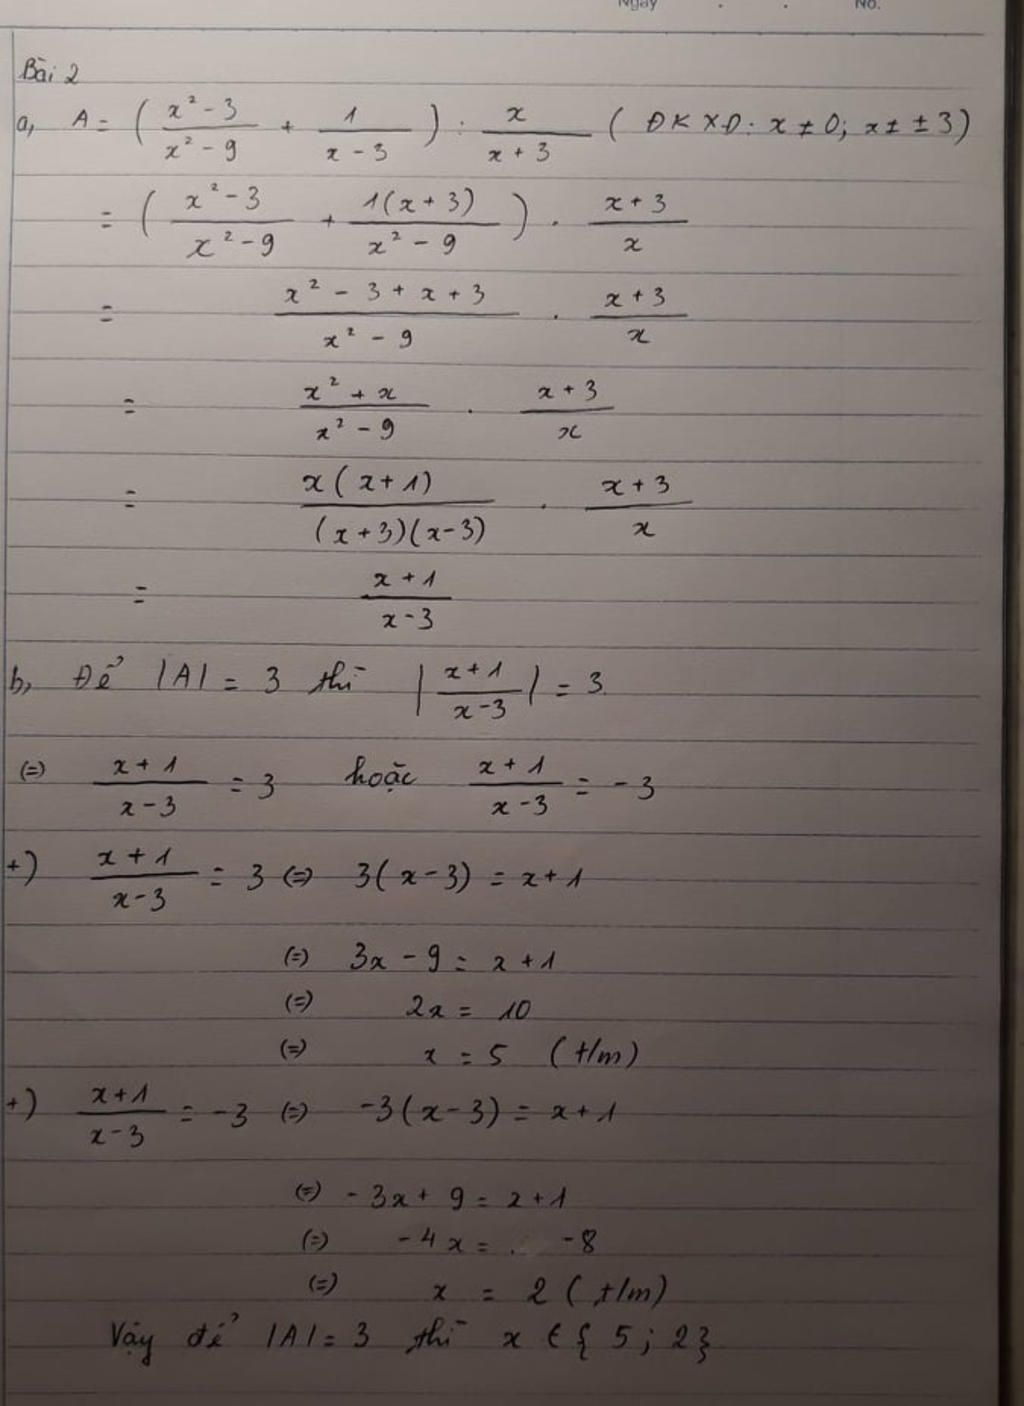 Ngày . . No.
Bài 2
a, A = ( (x² - 3)/(x² - 9) + 1/(x - 3) ) : x/(x + 3) ( ĐKXĐ: x ≠ 0; x ≠ ± 3)
= ( (x² - 3)/(x² - 9) + 1(x + 3)/(x² - 9) ) . (x + 3)/x
= (x² - 3 + x + 3)/(x² - 9) . (x + 3)/x
= (x² + x)/(x² - 9) . (x + 3)/x
= x(x + 1)/((x + 3)(x - 3)) . (x + 3)/x
= (x + 1)/(x - 3)
b, Để |A| = 3 thì |(x + 1)/(x - 3)| = 3
(=) (x + 1)/(x - 3) = 3 hoặc (x + 1)/(x - 3) = -3
+) (x + 1)/(x - 3) = 3 (=) 3(x - 3) = x + 1
(=) 3x - 9 = x + 1
(=) 2x = 10
(=) x = 5 (t/m)
+) (x + 1)/(x - 3) = -3 (=) -3(x - 3) = x + 1
(=) -3x + 9 = x + 1
(=) -4x = -8
(=) x = 2 (t/m)
Vậy để |A| = 3 thì x ∈ { 5 ; 2 }